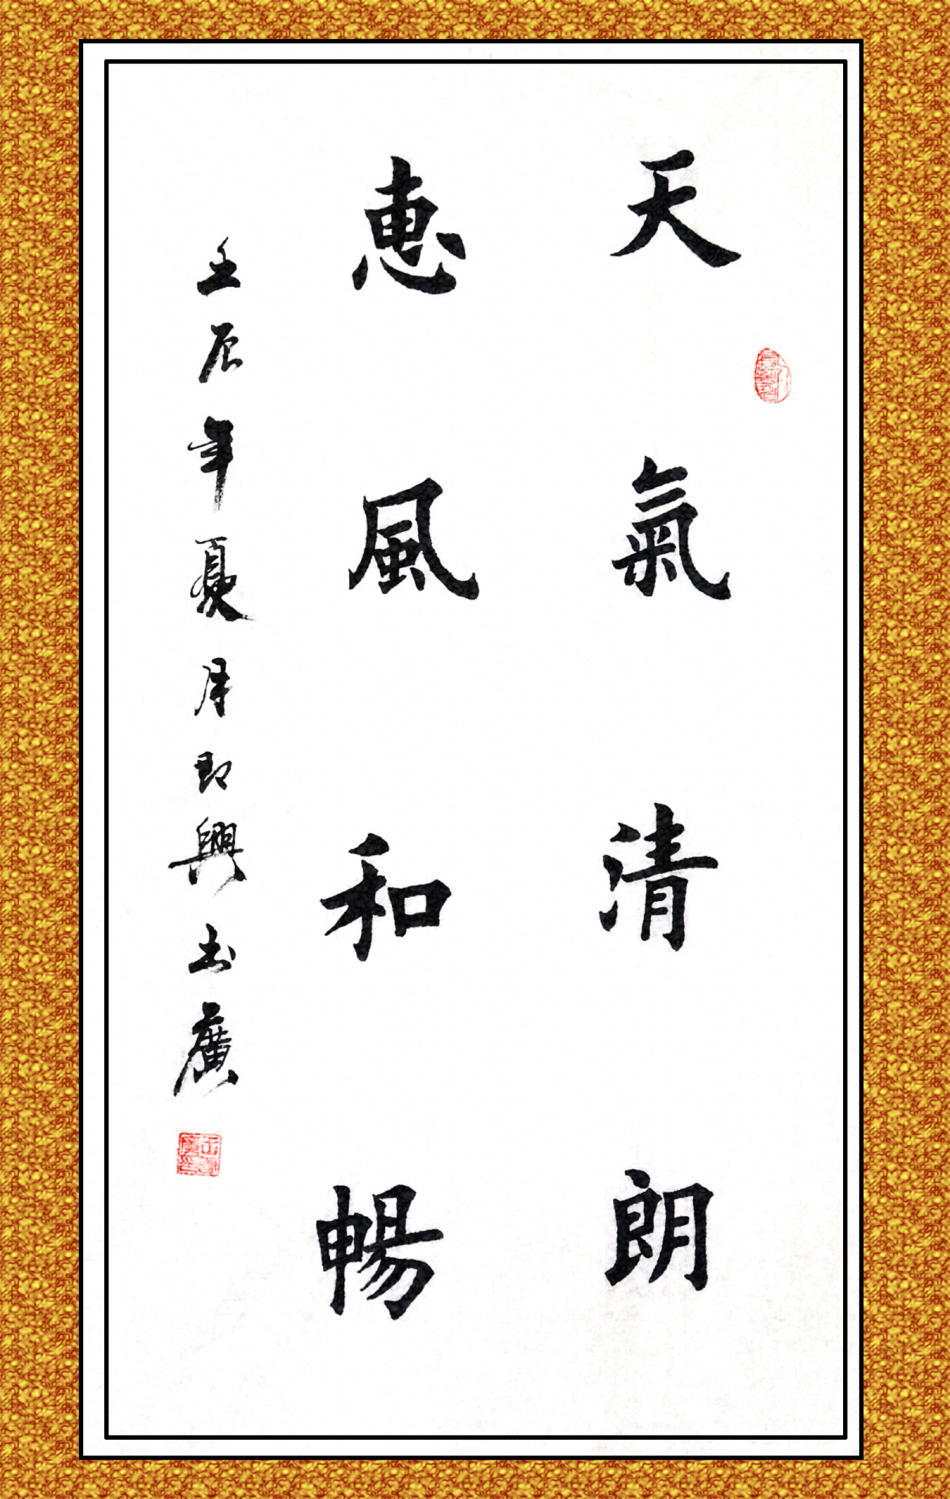 天氣清朗
惠風和暢
壬辰年夏月即興書廣